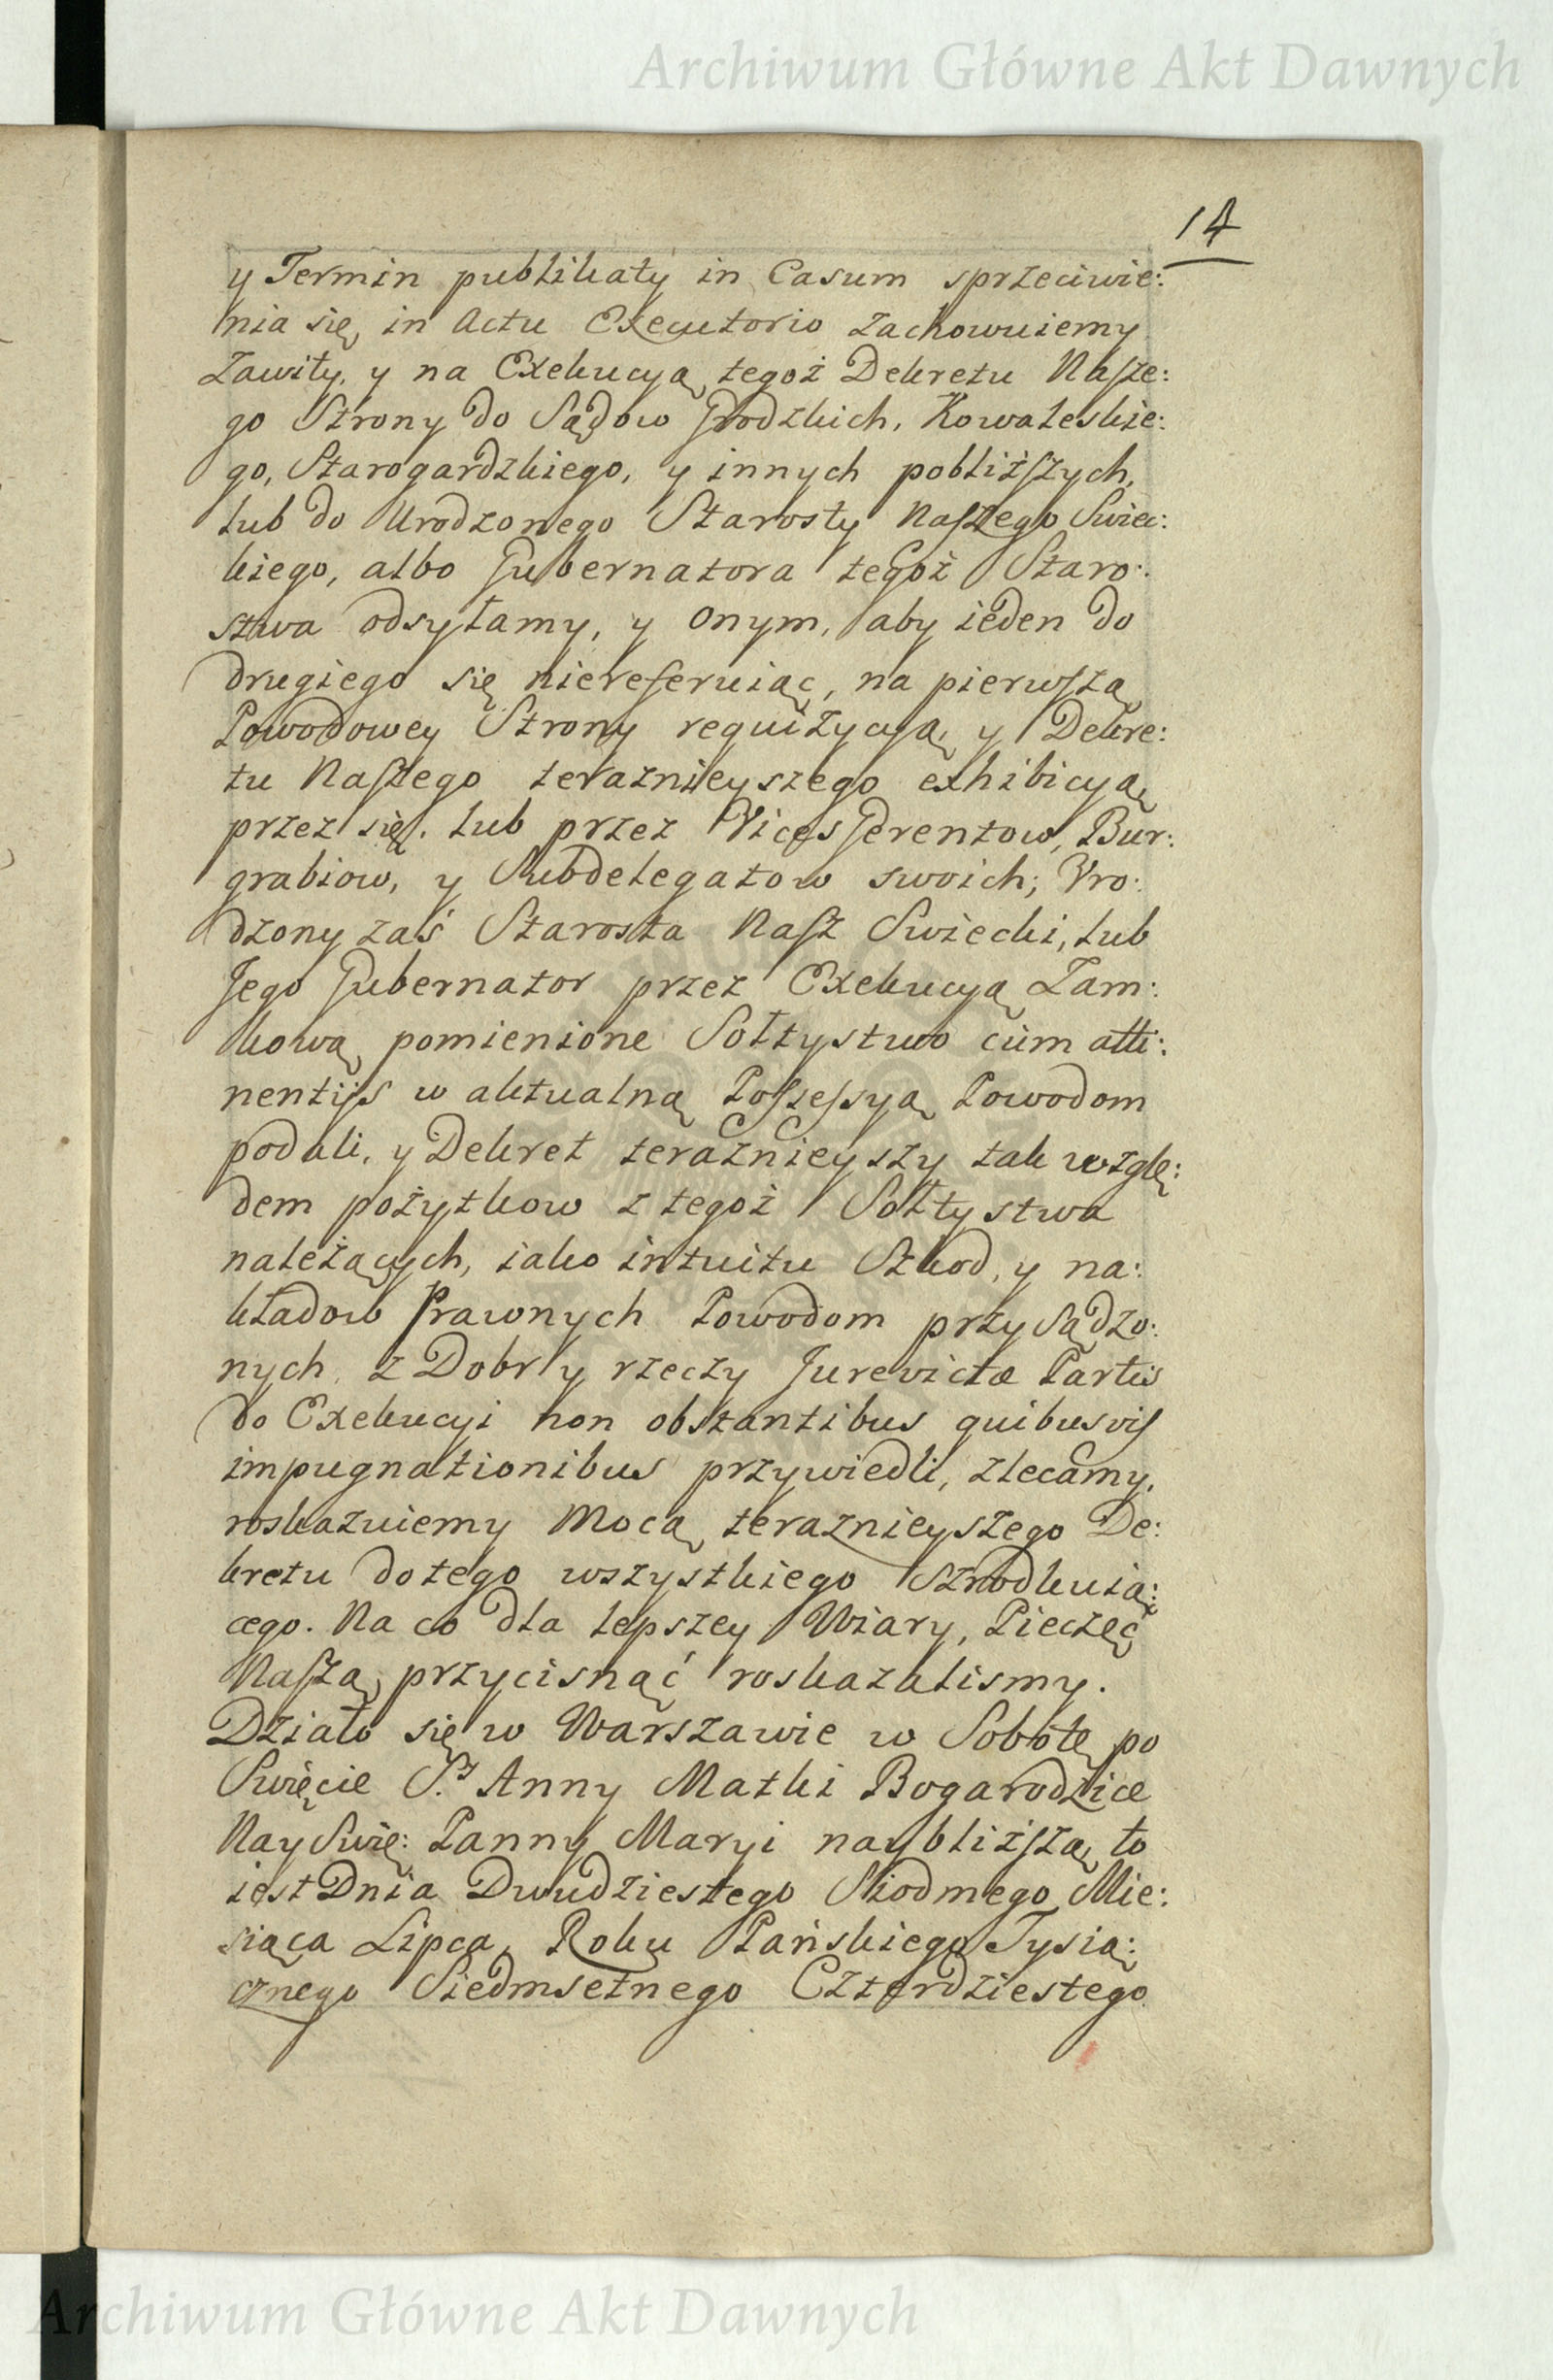 Archiwum Główne Akt Dawnych
14
y Termin publikaty in Casum sprzeciwie:
nia się, in Actu Executorio zachowuiemy
zawity, y na Exekucyą tegoż Dekretu Nasze:
go Strony do Sądow Grodzkich, Kowaleskie:
go, Starogardzkiego, y innych pobliższych,
lub do Urodzonego Starosty Naszego Swiec:
kiego, albo Gubernatora tegoż Staro:
stwa odsyłamy, y onym, aby ieden do
drugiego się niereferuiąc, na pierwszą
Powodowey Strony requizycyą, y Dekre:
tu Naszego teraznieyszego exhibicyą,
przez się, lub przez Vices Gerentow, Bur:
grabiow, y Subdelegatow swoich; Vro:
dzony zaś Starosta Nasz Swiecki, lub
Jego Gubernator przez Exekucyą Zam:
kową pomienione Sołtystwo cum atti:
nentijs w aktualną Possessyą Powodom
podali, y Dekret teraznieyszy tak wzglę:
dem pożytkow z tegoż Sołtystwa
należących, iako intuitu Szkod, y na:
kładow Prawnych Powodom przysądzo:
nych, z Dobr y rzeczy Jurevictæ Partis
do Exekucyi non obstantibus quibusvis
impugnationibus przywiedli, zlecamy,
roskazuiemy Mocą teraznieyszego De:
kretu do tego wszystkiego szrodkuią:
cego. Na co dla lepszey Wiary, Pieczęć
Naszą, przycisnąć roskazalismy.
Działo się w Warszawie w Sobotę po
Swięcie S. Anny Matki Bogarodzice
Nay Swię: Panny Maryi naybliższą, to
iest Dnia Dwudziestego Siodmego Mie:
siąca Lipca, Roku Pańskiego Tysią:
cznego Siedmsetnego Czterdziestego
Archiwum Główne Akt Dawnych